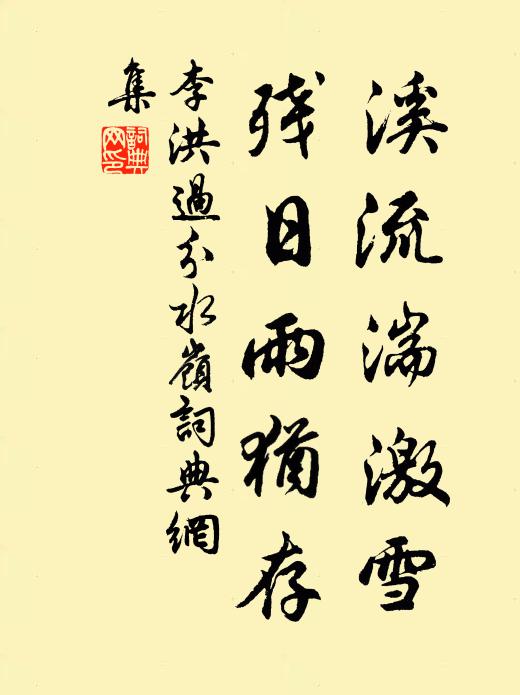 溪流湍激雪
残日雨猶存
李洪過分水嶺詞典網
集
詞典
网印